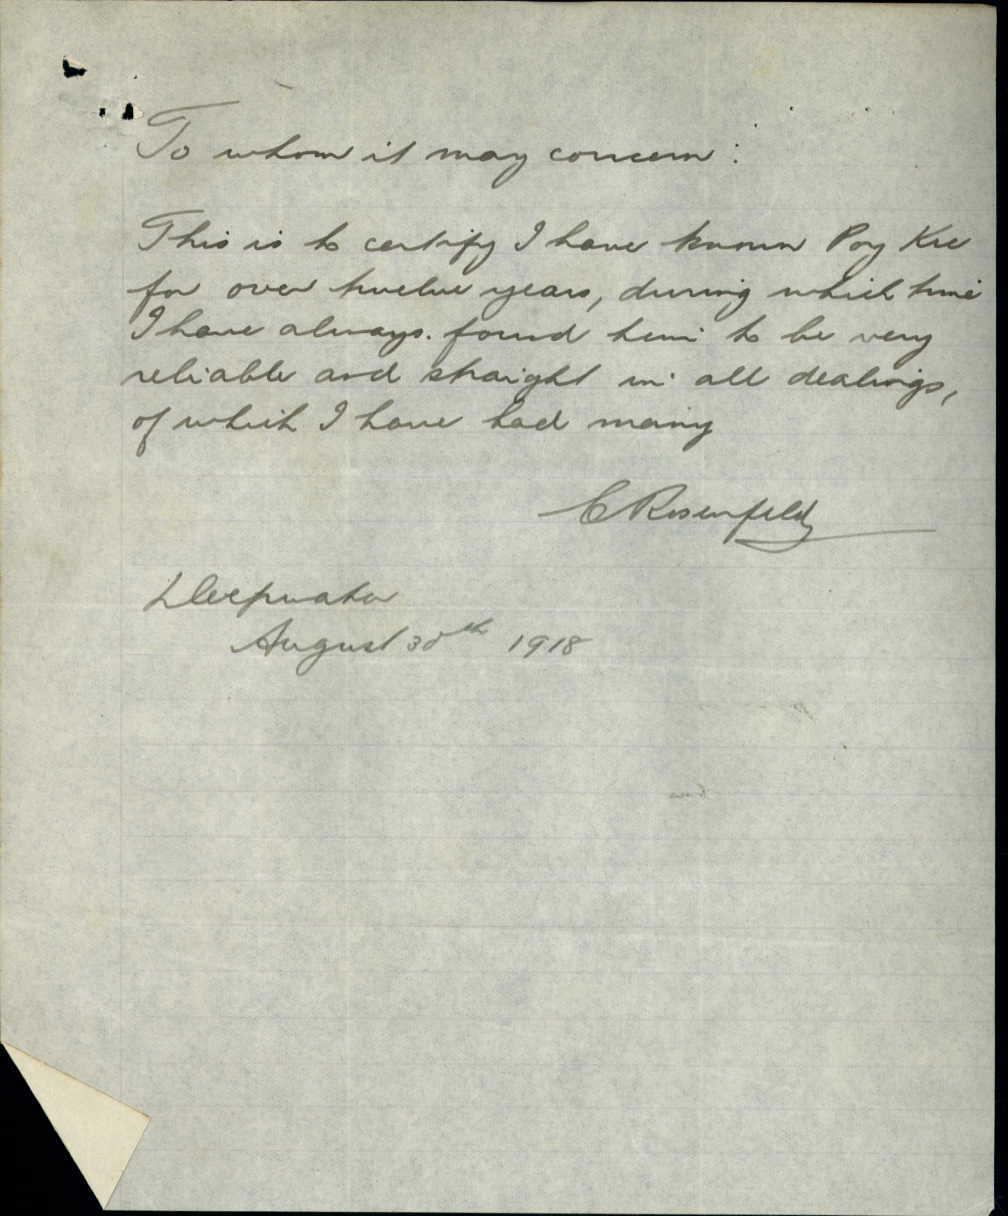 To whom it may concern:
This is to certify I have known Poy Kee
for over twelve years, during which time
I have always. found him to be very
reliable and straight in all dealings,
of which I have had many
C Rosenfeld
Deepwater
August 30th 1918